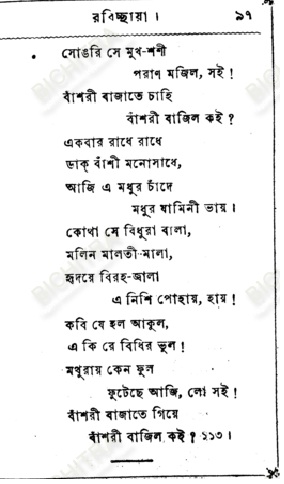 রবিচ্ছায়া। ৯৭
সোঙরি সে মুখ-শশী
পরাণ মজিল, সই!
বাঁশরী বাজাতে চাহি
বাঁশরী বাজিল কই?
একবার রাধে রাধে
ডাক্ বাঁশী মনোসাধে,
আজি এ মধুর চাঁদে
মধুর যামিনী ভায়।
কোথা সে বিধুরা বালা,
মলিন মালতী-মালা,
হৃদয়ে বিরহ-জালা
এ নিশি পোহায়, হায়!
কবি যে হল আকুল,
এ কি রে বিধির ভুল!
মথুরায় কেন ফুল
ফুটেছে আজি, লো সই!
বাঁশরী বাজাতে গিয়ে
বাঁশরী বাজিল কই? ২১৩।